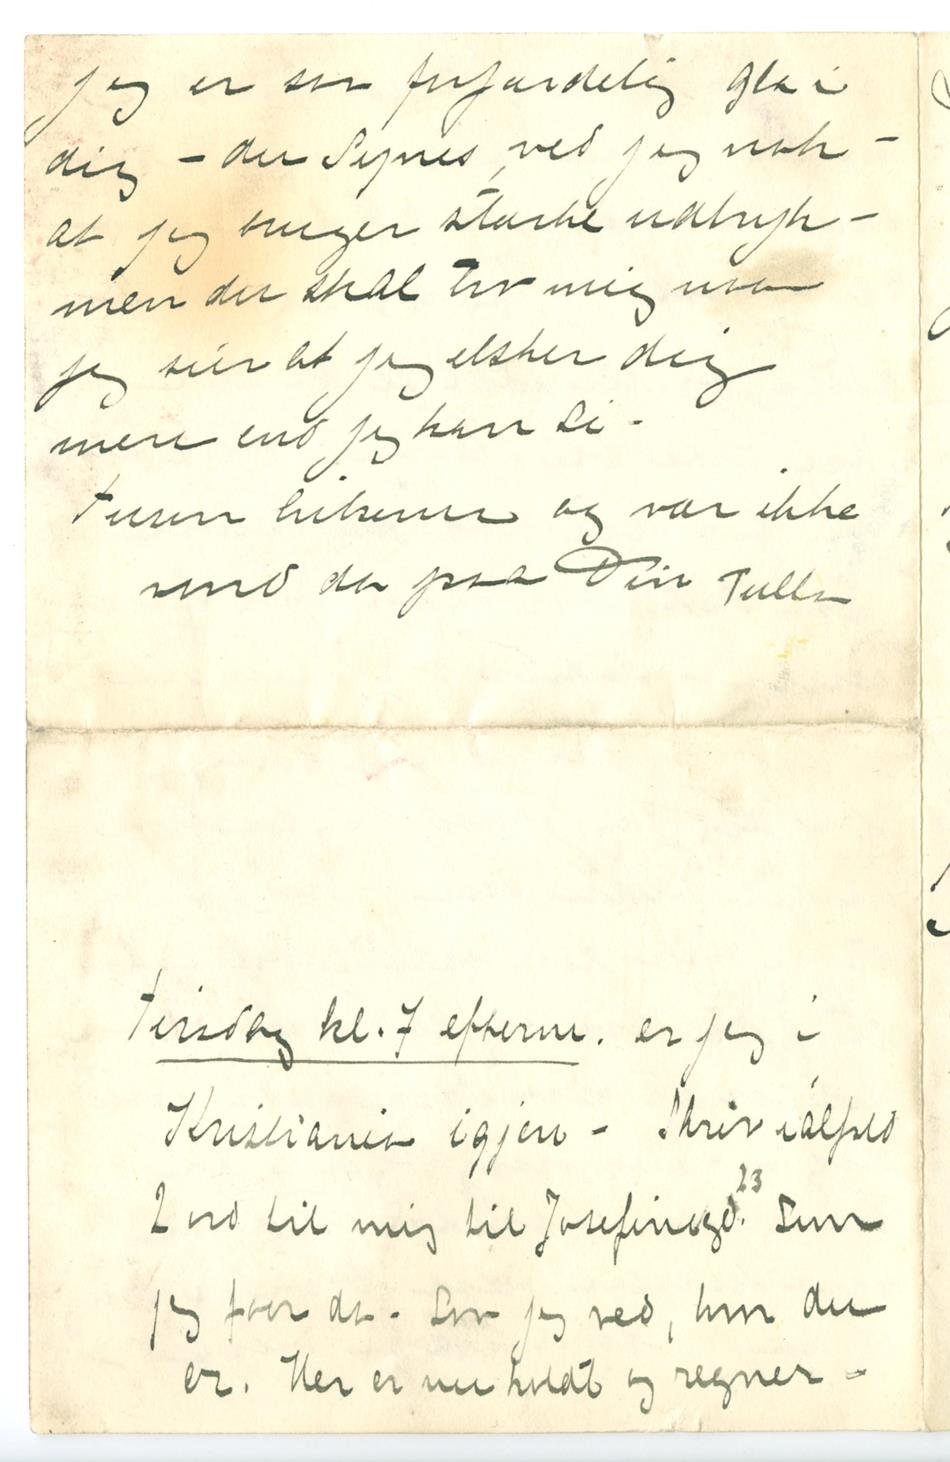 jeg er saa forfærdelig gla i
dig – du synes, ved jeg nok –
at jeg bruger stærke udtryk –
men du skal tro mig naar
jeg sier at jeg elsker dig
mere end jeg kan si –
tusen hilsener og vær ikke
vond da paa Din Tulla
tirsdag kl. 7 efterm. er jeg i
Kristiania igjen – Skriv ialfald
2 ord til mig til Josefinegd. 23 som
jeg faar da – Saa jeg ved, hvor du
er. Her er nu koldt og regner –